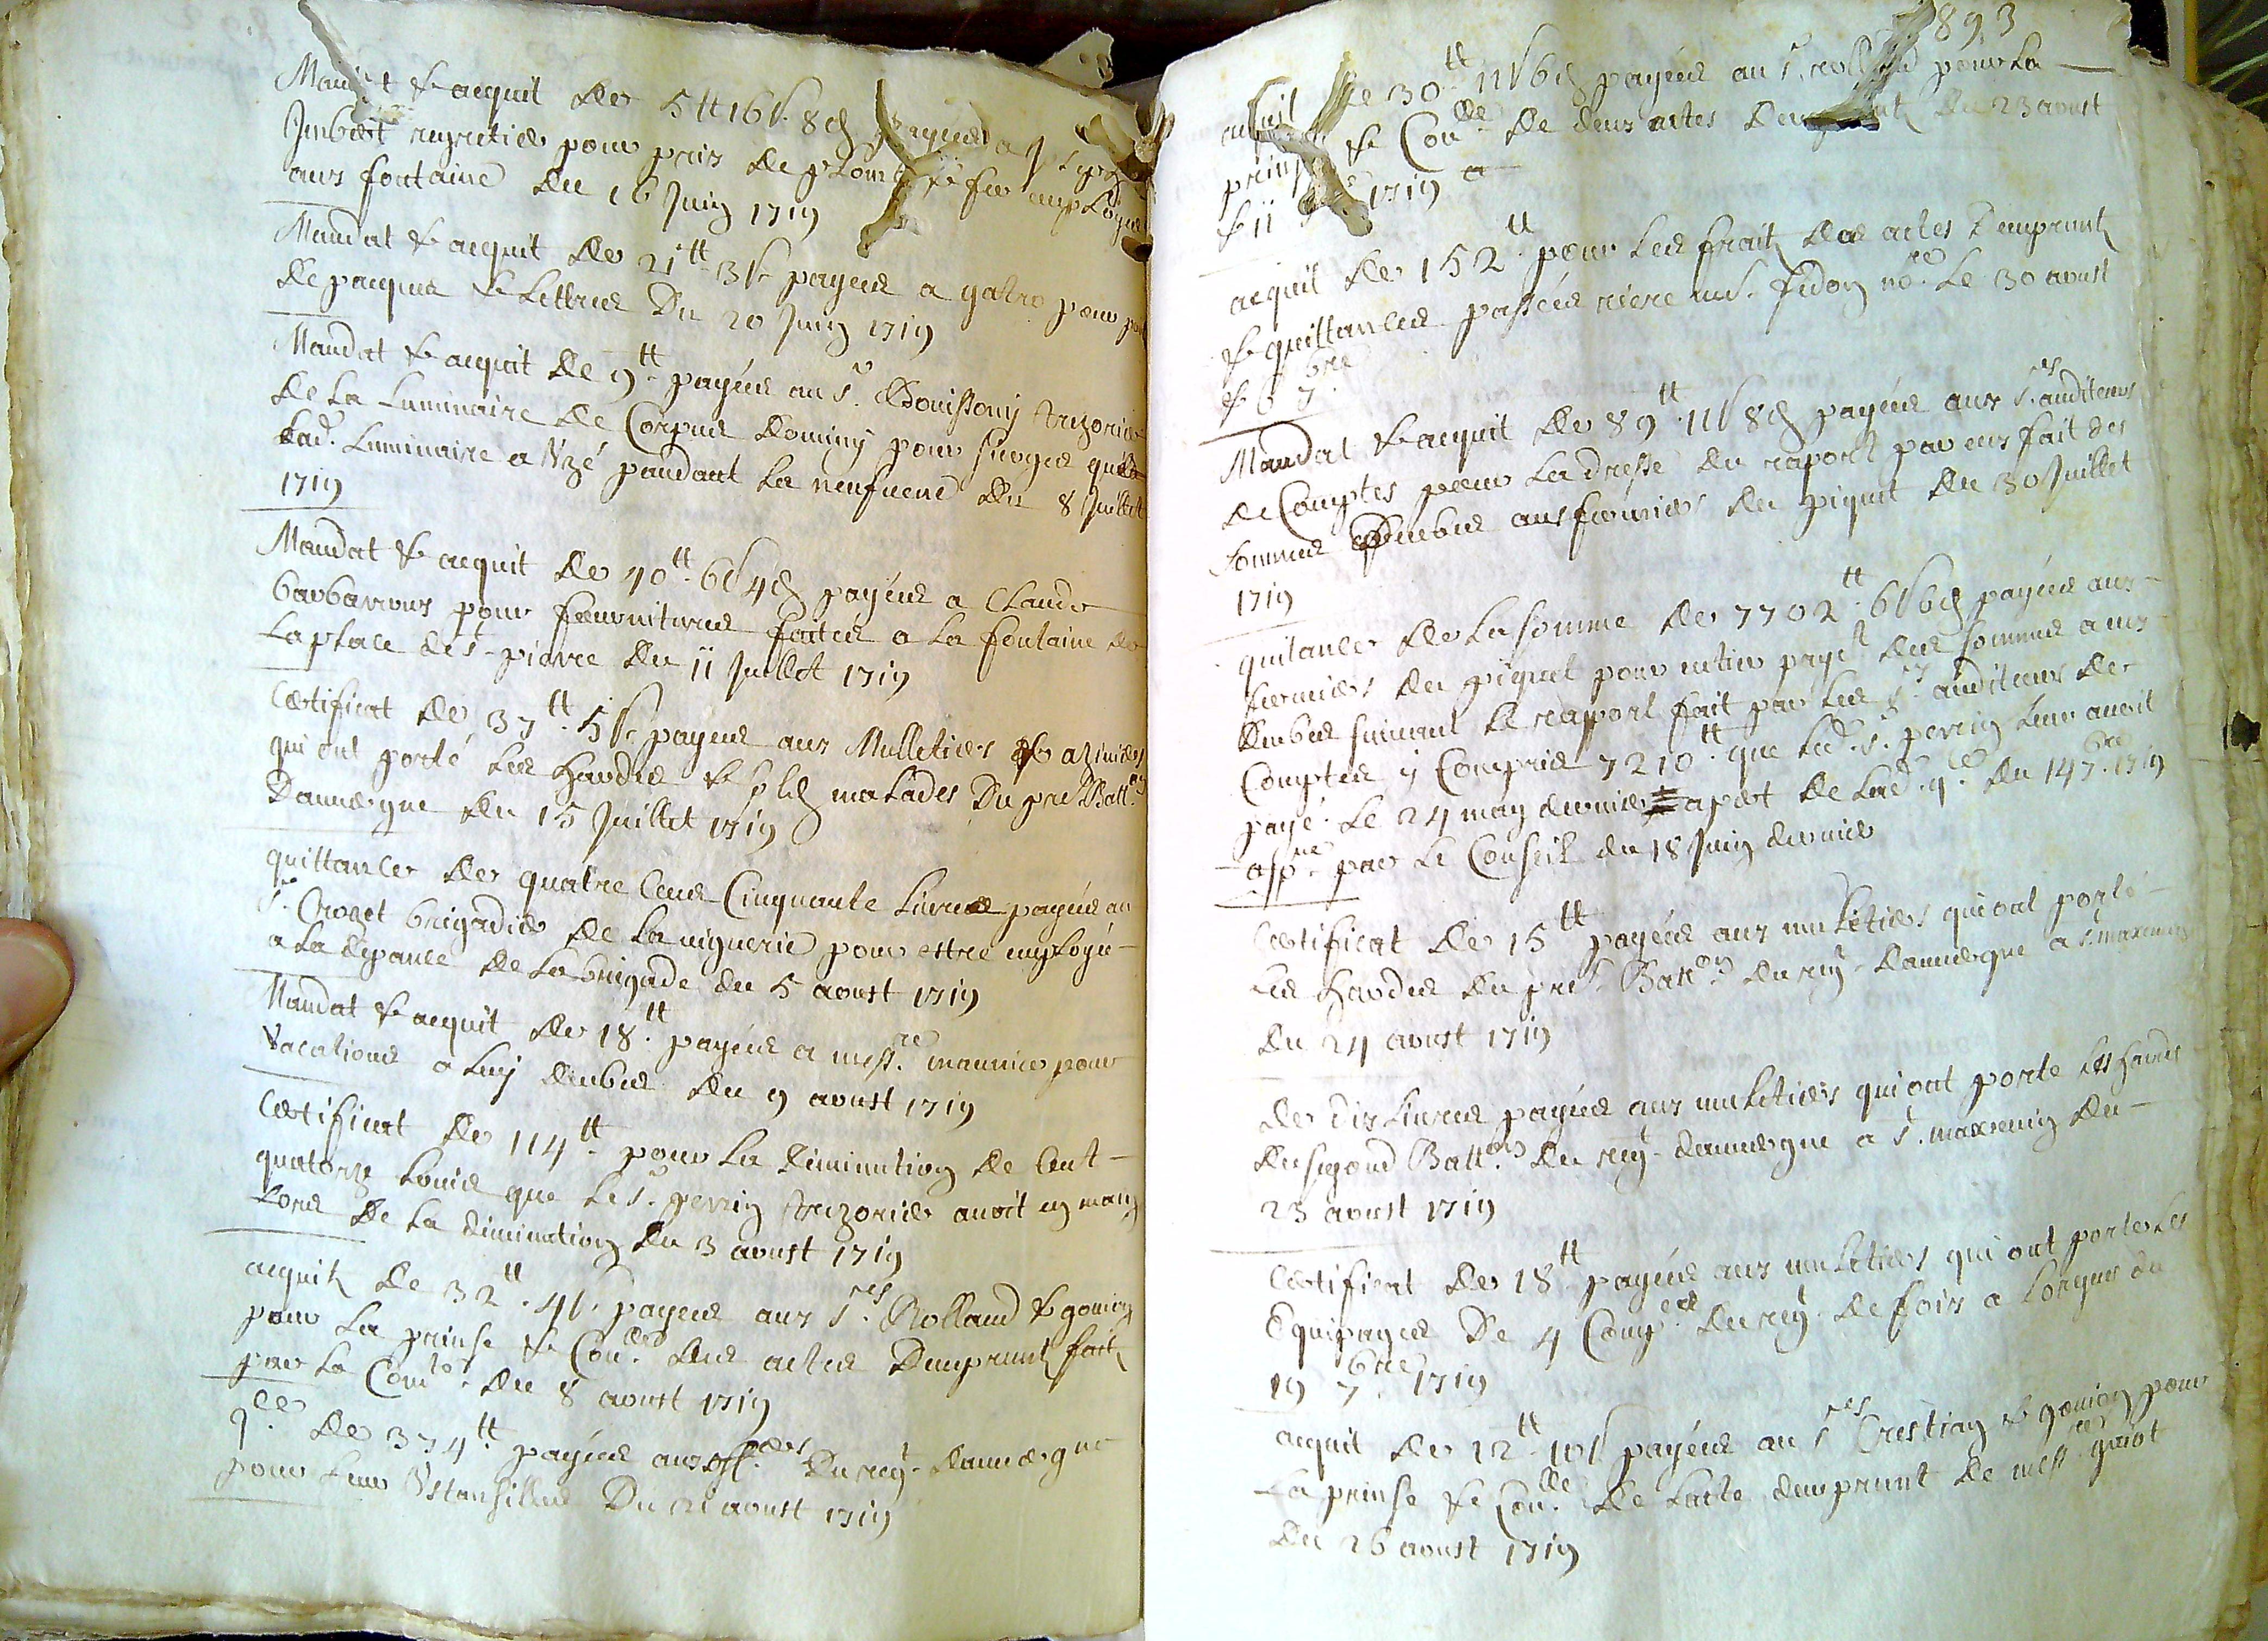 Mandat & acquit de 5tt 16s. 8d payées a
Jmbert regretier pour prix de plomb & fer employés
aux fontaine du 16 Juin 1719
Mandat & acquit de 21tt 3s payées a gatro pour
de pacques & Lettres Du 20 Juin 1719
Mandat & acquit de 9tt payées au Sr. trezorier
de la Luminaire de Corpus dominy pour cierges que
Lad. Luminaire a Vzé pandant la neufuene du 8 Juillet
1719
Mandat & acquit de 40tt. 6s 4d payées a Claude
barbarroux pour fournitures faites a la fontaine de
la place de St. pierre du 11 Juillet 1719
Certifficat de 37tt. 5s. payées aux Mulletiers &
qui ont porté Les hardes & slds malades Du pre.r Batt.on
Dauuergne du 15 Juillet 1719
quittance de quatre Cens Cinquante Liures payées au
Sr. Croset brigadier de la uiguerie pour estre employé
a la depance de la brigade du 5 aoust 1719
Mandat & acquit de 18tt. payées a mess.re maurice pour
Vacations a luy deubes du 9 aoust 1719
Certifficat de 114tt. pour La diminution de Cent
quatorze Louis que le Sr. perrin trezorier auoit en main
Lors de la diminution du 3 aoust 1719
acquit de 32tt. 4s. payées aux Srs. Rolland & gouion
pour la prinse & Con.lle des actes Demprunt fait
par la Com.té du 8 aoust 1719
q.ce de 374tt. payées aux off.ers Du regt. dauuergne
pour leur Vstansilles Du 21 aoust 1719
893
acquit de 30tt 11s 6d payées au Sr. rolland pour La
prinse & Con.lle de deux actes demprunt du 23 aoust
& 11 1719
acquit de 152tt. pour Les frait des actes Demprunt
& quittances passées riere me. fidon no.re Le 30 aoust
& 6 7bre
Mandat & acquit de 89tt. 11s 8d payées aux Srs. auditeurs
de Comptes pour La dresse du raport par eux fait des
sommes deubes aux fermiers du piquet du 30 Juillet
1719
quitance de La somme de 7702tt. 6s 6d payées aux
fermiers du piquet pour entier payet. des sommes a eux
deubes suiuant Le rapport fait par Les Srs. auditeurs de
Comptes y Compris 7210tt. que Led. Sr. perrin leur auoit
payé. Le 24 may dernier apert de Lad. q.ce du 14 7bre. 1719
par Le Conseil du 18 Juin dernier
Certifficat de 15tt payées aux muletiers qui ont porté
Les hardes du pre.r Batt.on du regt. dauuergne a St. maximin
du 24 aoust 1719
de dix Liures payées aux muletiers qui ont porté Les hardes
du segond Batt.on du regt. dauuergne a St. maximin du
23 aoust 1719
Certifficat de 18tt. payées aux muletiers qui ont porté Les
Equipages de 4 Comp.es du regt. de foix a Lorgues du
19 7bre. 1719
acquit de 12tt. 10s payées au Srs Crestian & gouion pour
La prinse & Con.lle de Lacte demprunt de mess.re guiot
du 26 aoust 1719